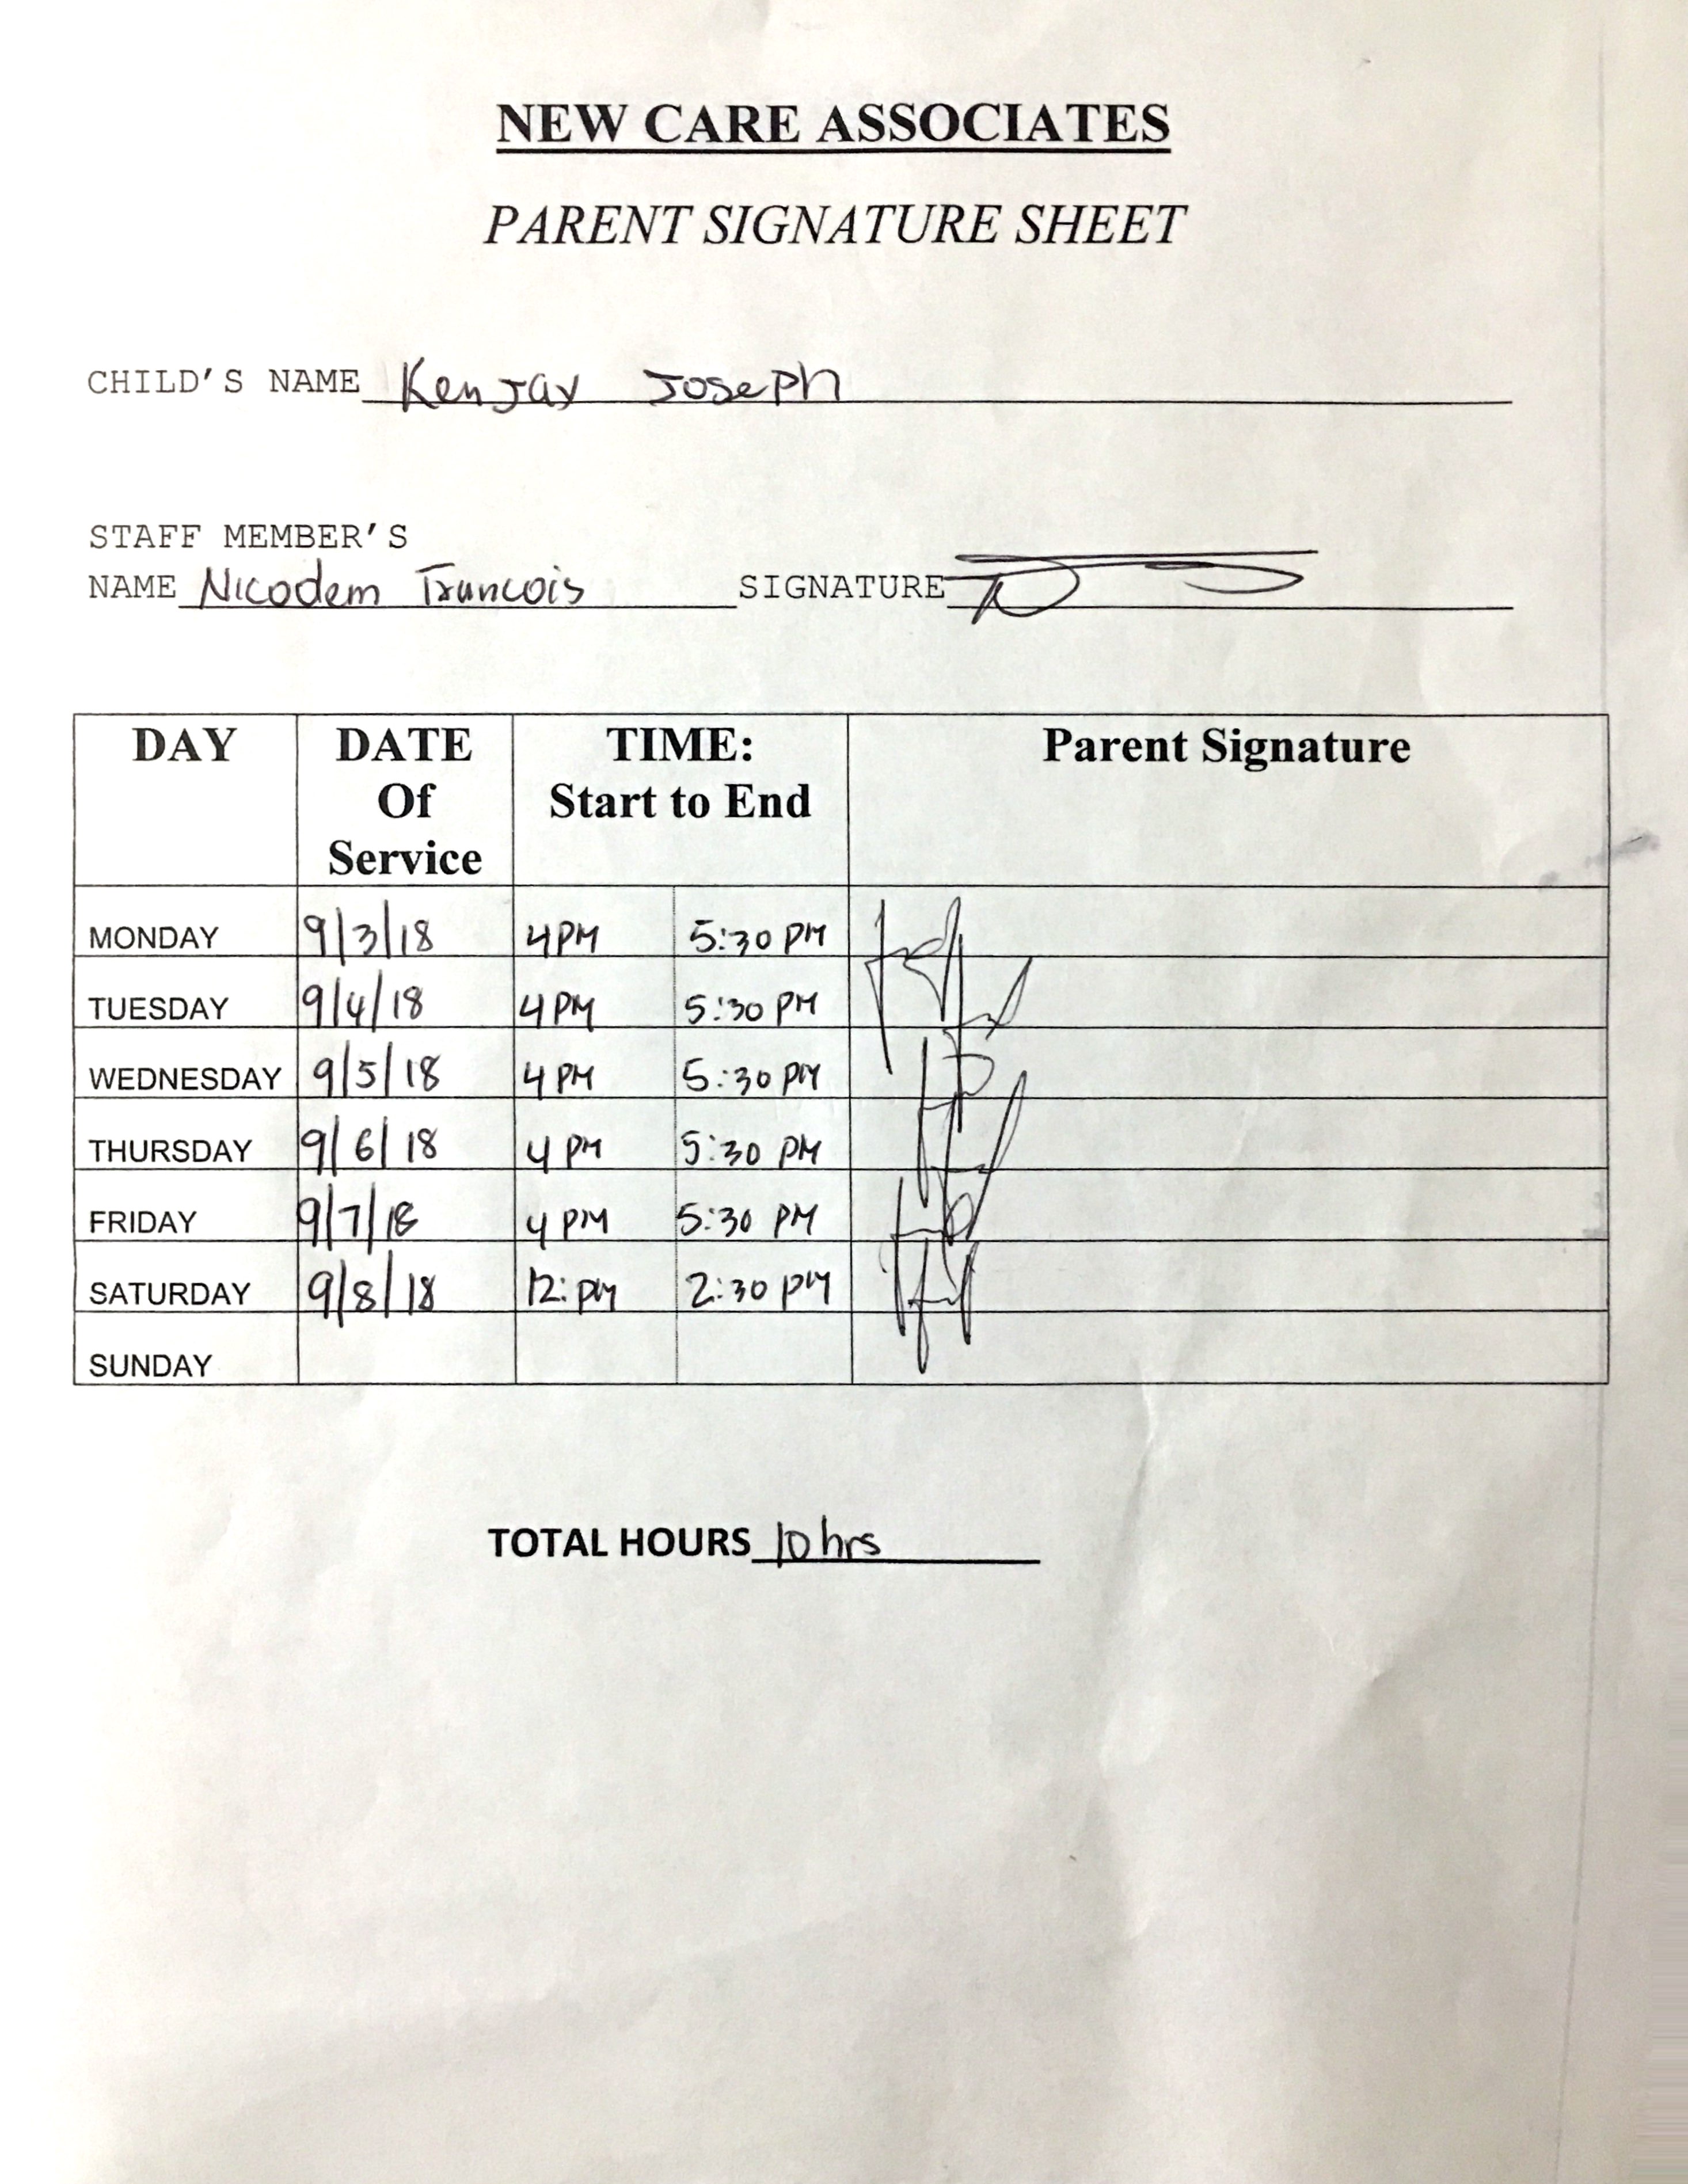 NEW CARE ASSOCIATES
PARENT SIGNATURE SHEET
CHILD'S NAME Kenjay Joseph
STAFF MEMBER'S
NAME Nicodem Francois SIGNATURE
DAY DATE Of Service TIME: Start to End Parent Signature
MONDAY 9/3/18 4PM 5:30 PM
TUESDAY 9/4/18 4PM 5:30 PM
WEDNESDAY 9/5/18 4 PM 5:30 PM
THURSDAY 9/6/18 4 PM 5:30 PM
FRIDAY 9/7/18 4 PM 5:30 PM
SATURDAY 9/8/18 12: PM 2:30 PM
SUNDAY
TOTAL HOURS 10 hrs